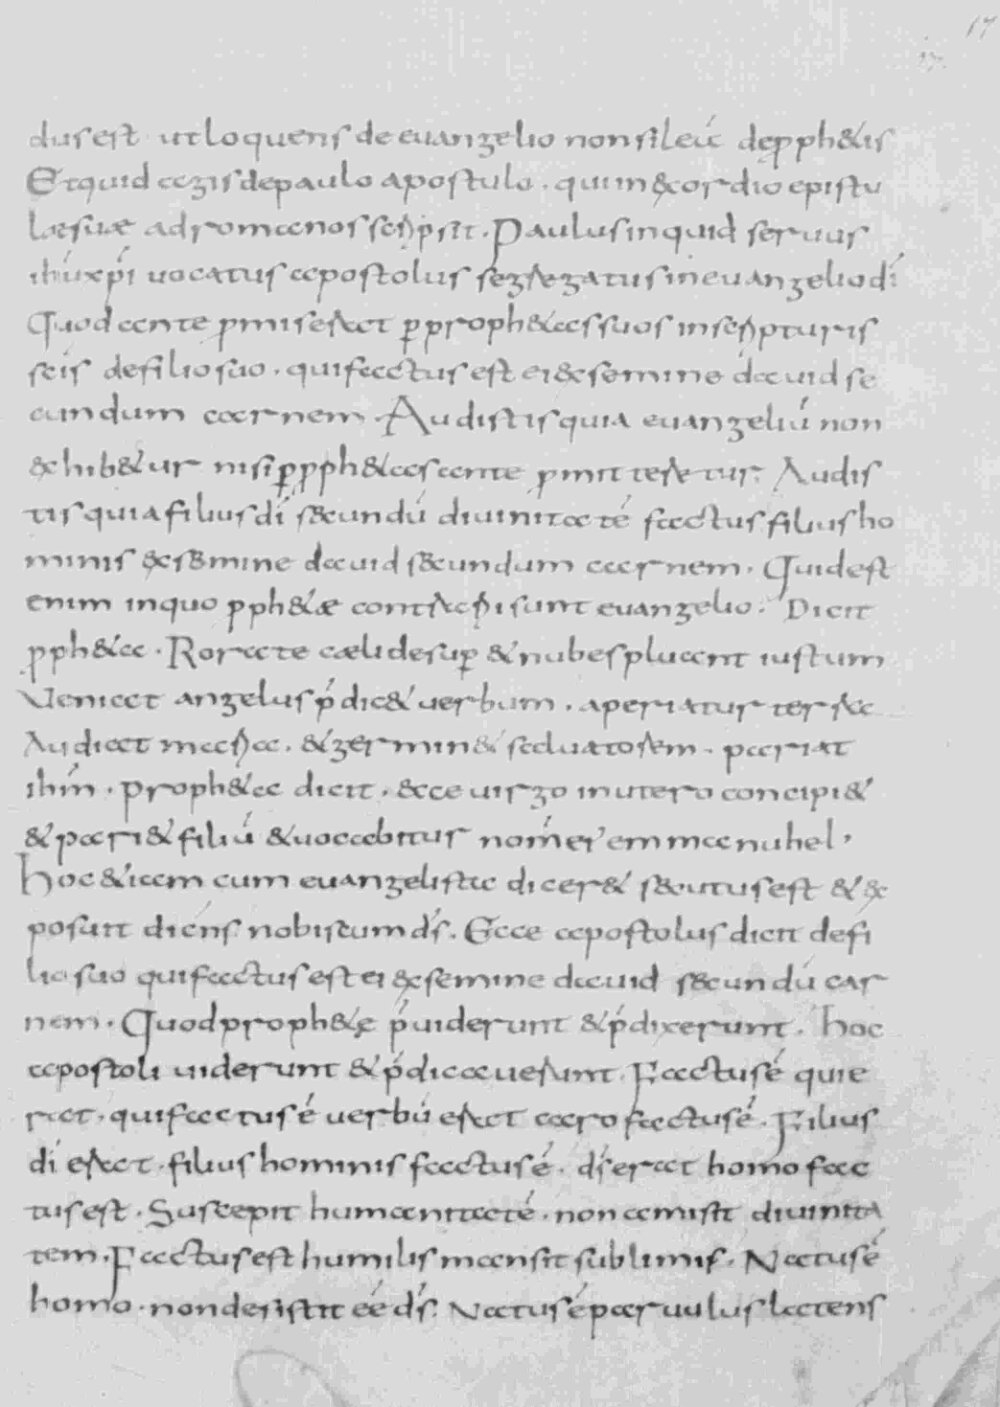 17
dus est ut loquens de euangelio non sileã de ꝓph&is
Et quid agis de paulo apostulo · qui in exordio epistu
lae suae ad romanos scripsit · Paulus inquid seruus
ihũ xp̃i uocatus apostolus segregatus in euangelio dĩ
Quod ante ꝓmiserat ꝑ proph&as suos in scripturis
scĩs de filio suo · qui factus est ei ex semine dauid se
cundum carnem · Audistis quia euangeliũ non
exhib&ur nisi ꝑ ꝓph&as ante ꝓmitteretur · Audis
tis quia filius dĩ s&cundũ diuinitatẽ factus filius ho
minis ex semine dauid s&cundum carnem · Quid est
enim in quo ꝓph&ae contrarii sunt euangelio · Dicit
ꝓph&a · Rorate caeli desuꝑ & nubes pluant iustum
Veniat angelus p̃dic& uerbum · aperiatur terra
Audiat maria · & germin& saluatorem · pariat
ihm̃ · proph&a dicit · &cce uirgo in utero concipi&
& pari& filiũ & uocabitur nom̃ ei' emmanuhel ·
Hoc &iam cum euangelista dicer& s&cutus est & ex
posuit dicẽns nobiscum ds̃ · Ecce apostolus dicit de fi
lio suo qui factus est ei ex semine dauid s&cundũ car
nem · Quod proph&ę p̃uiderunt & p̃dixerunt · hoc
apostoli uiderunt & p̃dicauerunt · Factus ẽ quie
rat · qui factus ẽ uerbũ erat caro factus ẽ · Filius
dĩ erat · filius hominis factus ẽ · ds̃ erat homo fac
tus est · Suscepit humanitatẽ · non amisit diuinita
tem · Factus est humilis mansit sublimis · Natus ẽ
homo · non desistit eẽ ds̃ · Natus ẽ paruulus lactens